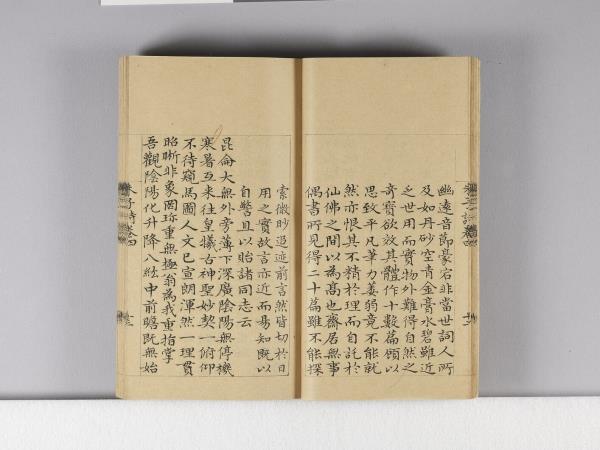 幽邃音節豪宕非當世詞人所
及如丹砂空青金膏水碧雖近
乏世用而實物外難得自然之
奇寳欲效其體作十數篇顧以
思致平凡筆力萎弱竟不能就
然亦恨其不精於理而自託於
仙佛之間以為高也齋居無事
偶書所見得二十篇雖不能探
索微眇追迹前言然皆切於日
用之實故言亦近而易知既以
自警且以貽諸同志云
昆侖大無外旁薄下深廣陰陽無停機
寒暑互来往皇犧古神聖妙契一俯仰
不待窺馬圖人文已宣朗渾然一理貫
昭晰非象罔珍重無極翁為我重指掌
吾觀陰陽化升降八紘中前瞻既無始